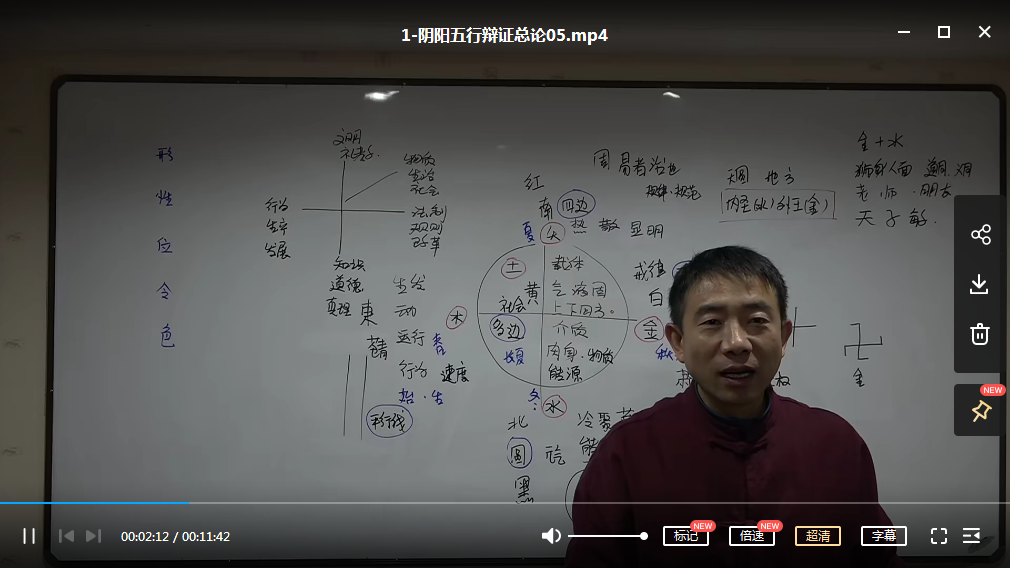 1-阴阳五行辩证总论05.mp4
形
性
位
令
色
文明
礼教
物质
生活
社会
行为
生产
发展
法制
规则
改革
知识
道德
真理
東
生发
动
运行
春
行为 速度
始·生
平行线
木
周易者治世
规律·规范
天圆 地方
内圣(水)外王(金)
金+水
狮身人面
老 师·朋友
红
南
四边
夏
火
热 散 显明
土
载体
黄
气 液 固
社会
上下四方。
多边
介质
肉身·物质
能源
戒律
白
金
秋
金
冬
水
北
冷 聚
圆
黑
00:02:12 / 00:11:42
标记
NEW
倍速
NEW
超清
字幕
NEW